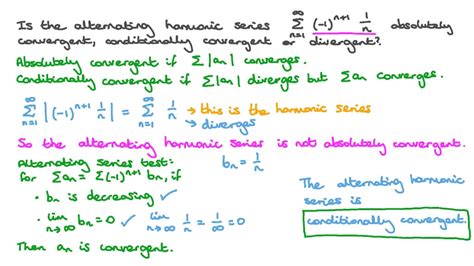 Is the alternating harmonic series ∞∑n=1 (-1)^(n+1) 1/n absolutely
convergent, conditionally convergent or divergent?
Absolutely convergent if Σ|an| converges.
Conditionally convergent if Σ|an| diverges but Σan converges.
∞∑n=1 |(-1)^(n+1) 1/n| = ∞∑n=1 1/n → this is the harmonic series
→ diverges
So the alternating harmonic series is not absolutely convergent.
Alternating series test:
for Σan = Σ(-1)^(n+1) bn, if
bn = 1/n
• bn is decreasing ✓
• lim n→∞ bn = 0 ✓ lim n→∞ 1/n = 1/∞ = 0
Then an is convergent.
The alternating harmonic
series is
conditionally convergent.